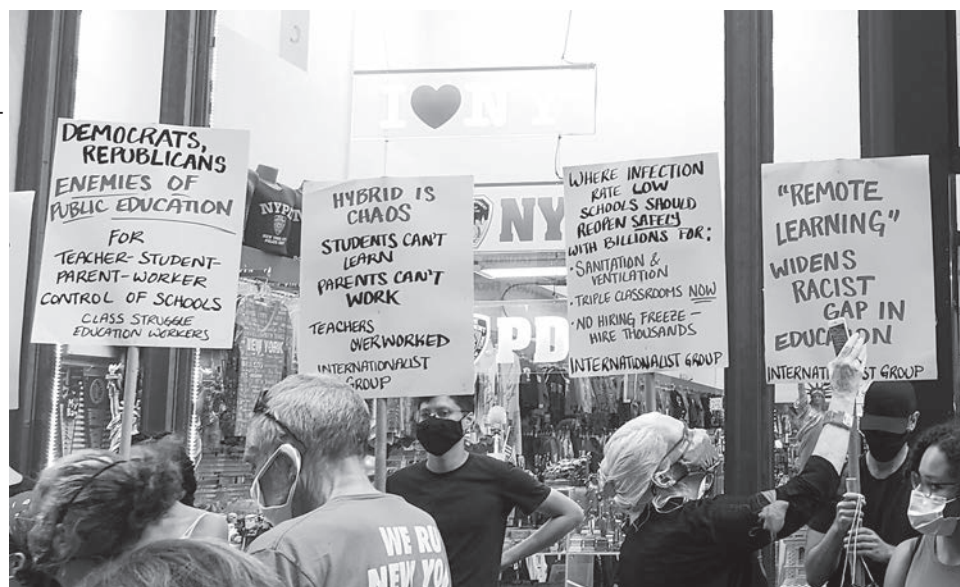 DEMOCRATS,
REPUBLICANS
ENEMIES OF
PUBLIC EDUCATION
FOR
TEACHER-STUDENT-
PARENT-WORKER
CONTROL OF SCHOOLS
CLASS STRUGGLE
EDUCATION WORKERS
HYBRID IS
CHAOS
STUDENTS CAN'T
LEARN
PARENTS CAN'T
WORK
TEACHERS
OVERWORKED
INTERNATIONALIST
GROUP
WHERE INFECTION
RATE LOW
SCHOOLS SHOULD
REOPEN SAFELY
WITH BILLIONS FOR:
• SANITATION &
VENTILATION
• TRIPLE CLASSROOMS NOW
• NO HIRING FREEZE –
HIRE THOUSANDS
INTERNATIONALIST GROUP
"REMOTE
LEARNING"
WIDENS
RACIST
GAP IN
GROUP
I ♥ NY
NYPD
NY
PD
NEW YORK
WE RU
NEW YO